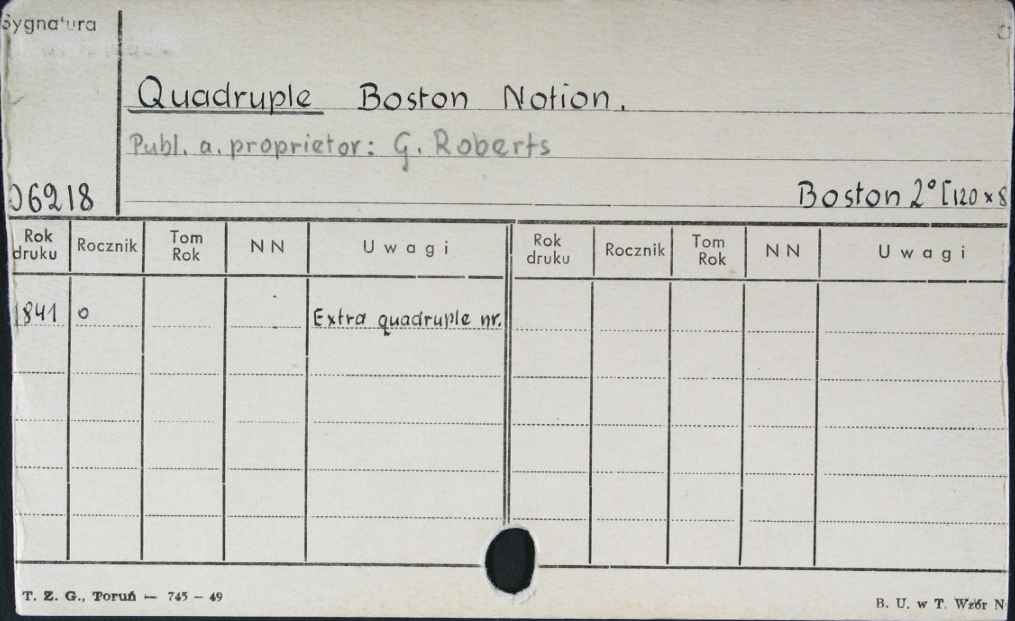 Sygnatura
Quadruple Boston Notion.
Publ. a. proprietor: G. Roberts
06218
Boston 2° [120 x 8
Rok druku Rocznik Tom Rok NN Uwagi Rok druku Rocznik Tom Rok NN Uwagi
1841 0 Extra quadruple nr.
T. Z. G., Toruń — 745 — 49
B. U. w T. Wzór N